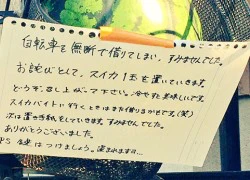 自転車を無断で借りてしまい、すみませんでした。
お詫びとして、スイカ1玉を置いていきます。
どうぞ、召し上がって下さい。冷やすと美味しいです。
スイカバイトに行くときはまた借りるかもです。(笑)
次は置き手紙をしていきます。すみませんでした。
ありがとうございました。
PS はつけましょう。盗まれますよ…